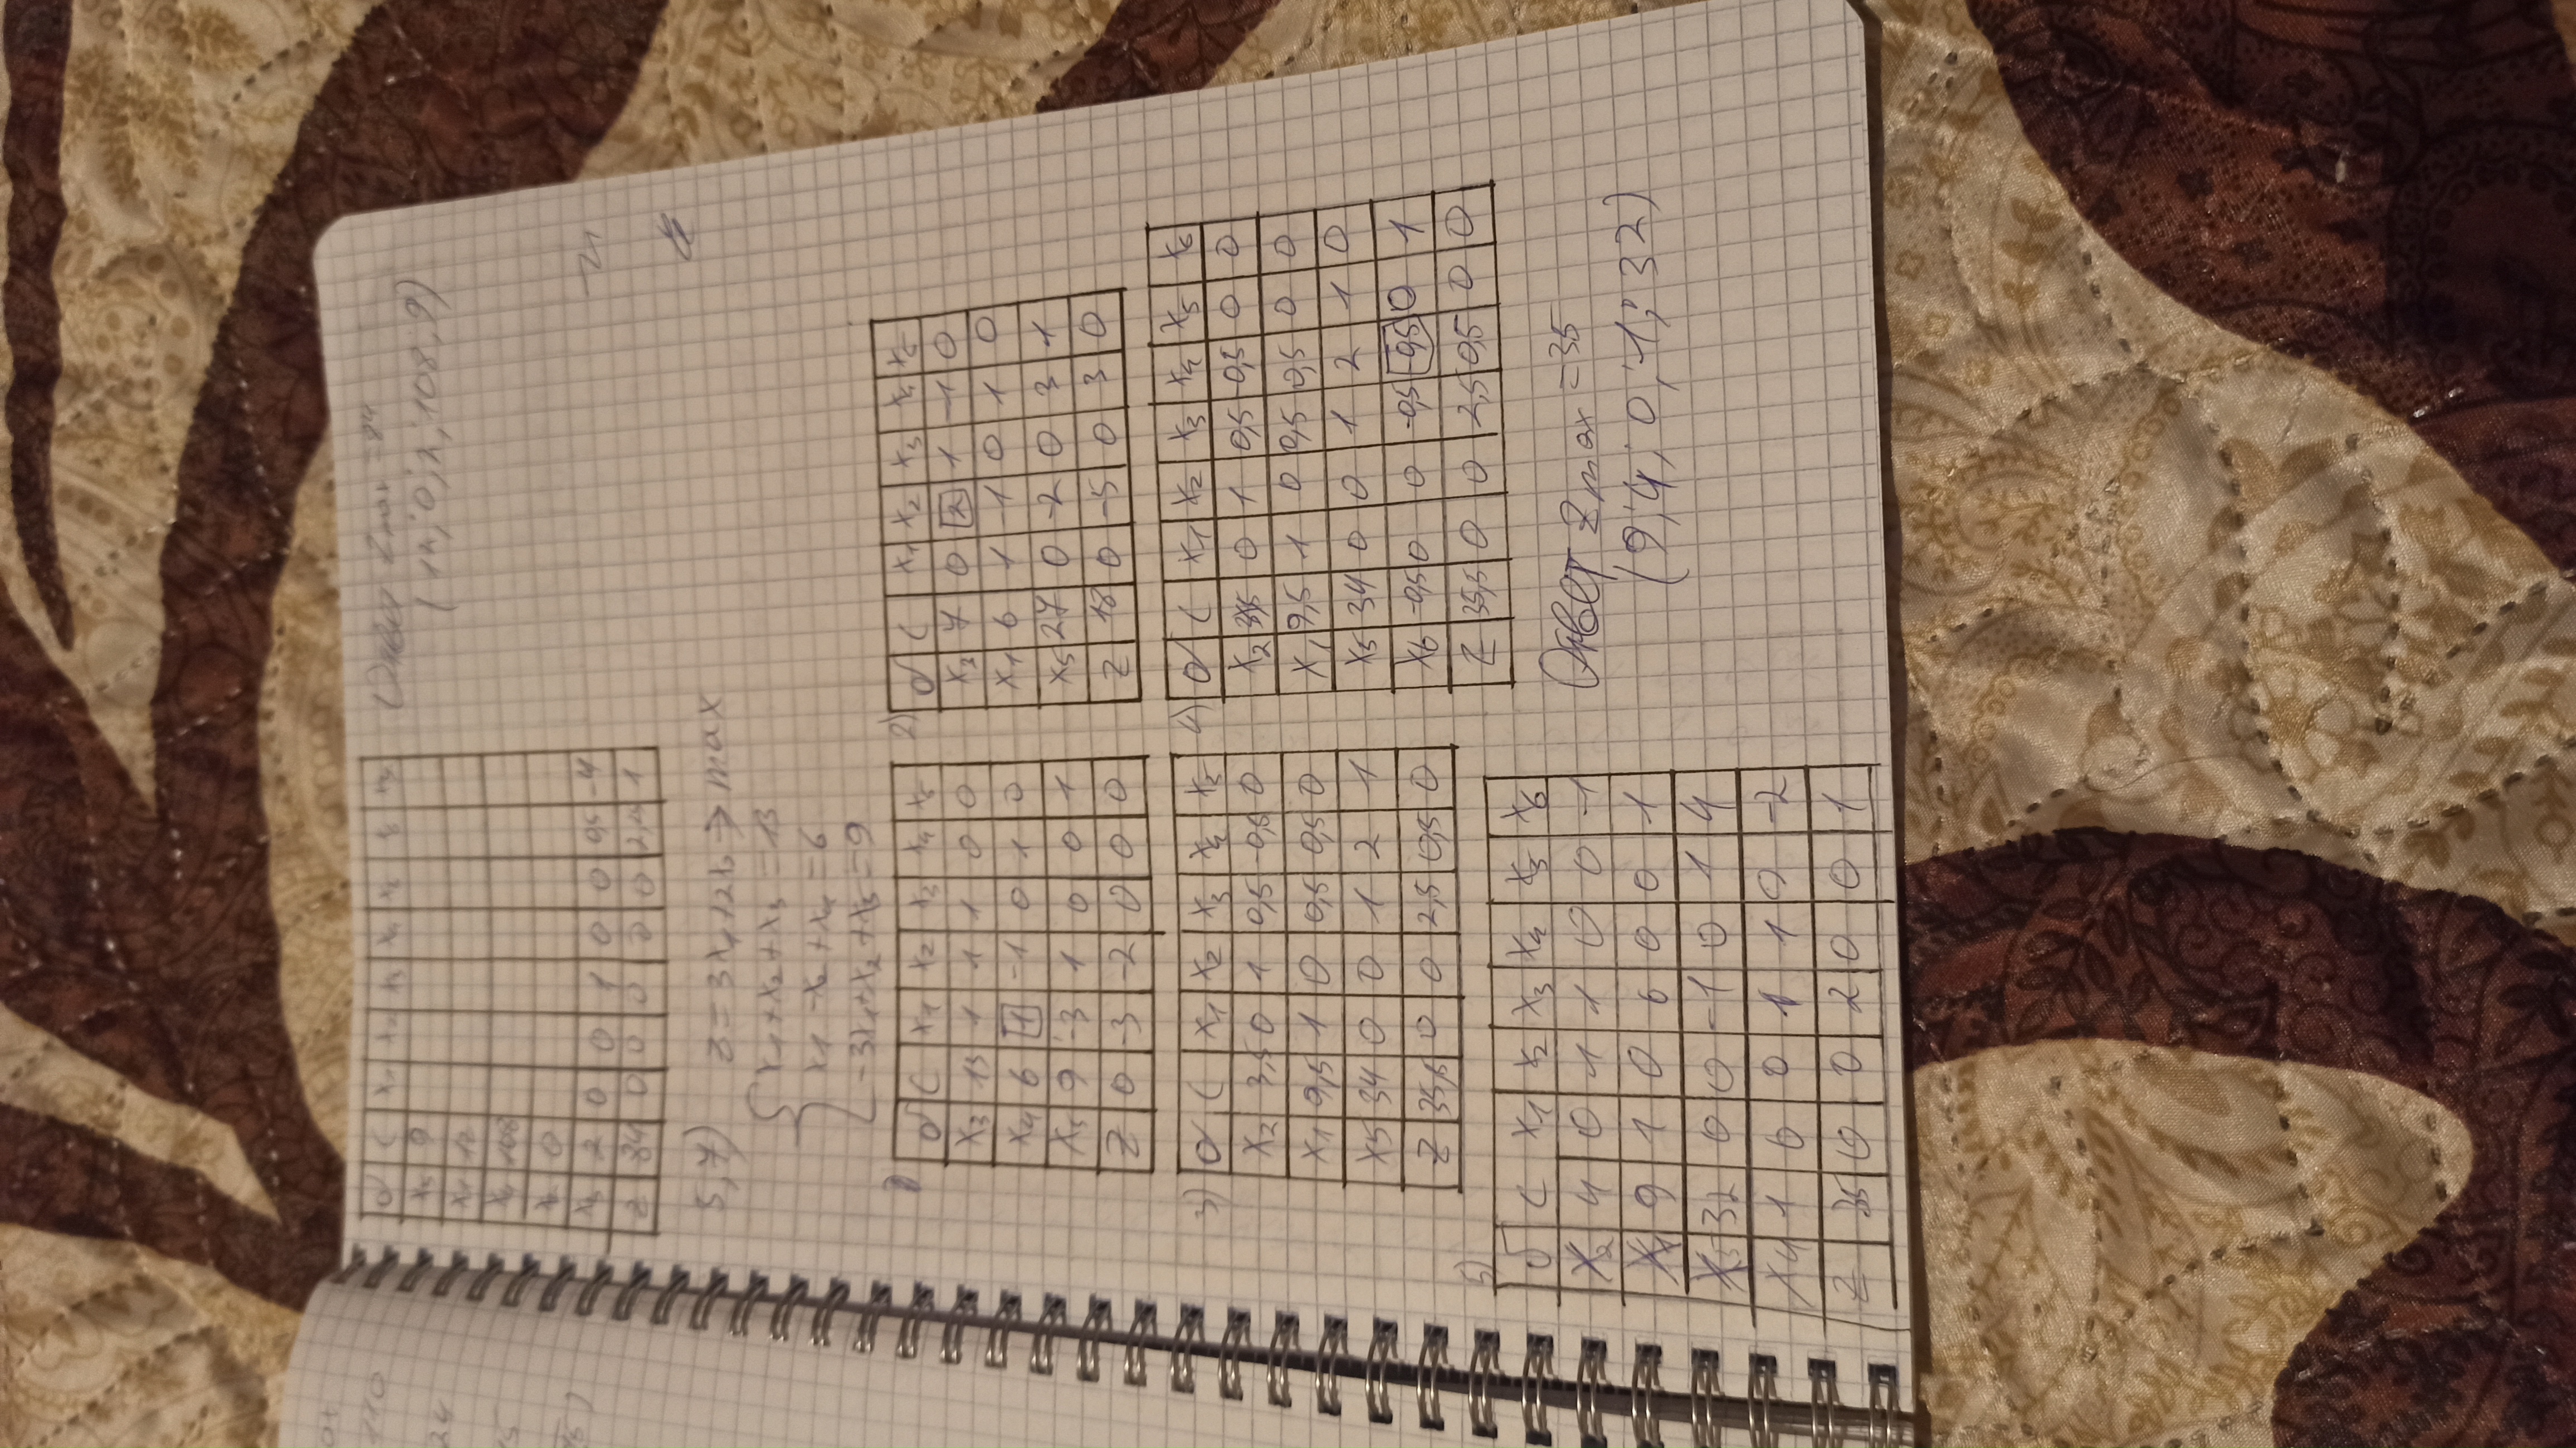 б C x1 x2 x3 x4 x5 x6 x7
x5 9
x1 12
x4 108
x2 0
x3 2 0 0 1 0 0 0,5 -4
z 84 0 0 0 0 0 2,25 1
Ответ Zmax = 84
(12; 0; 2; 108; 9)
5,7) Z = 3x1 + 2x2 → max
x1 + x2 + x3 = 13
x1 - x2 + x4 = 6
-3x1 + x2 + x5 = 9
1)
б C x1 x2 x3 x4 x5
x3 13 1 1 1 0 0
x4 6 1 -1 0 1 0
x5 9 -3 1 0 0 1
Z 0 -3 -2 0 0 0
2)
б C x1 x2 x3 x4 x5
x3 7 0 2 1 -1 0
x1 6 1 -1 0 1 0
x5 27 0 -2 0 3 1
Z 18 0 -5 0 3 0
3)
б C x1 x2 x3 x4 x5
x2 3,5 0 1 0,5 -0,5 0
x1 9,5 1 0 0,5 0,5 0
x5 34 0 0 1 2 1
Z 35,5 0 0 2,5 0,5 0
4)
б C x1 x2 x3 x4 x5 x6
x2 3,5 0 1 0,5 -0,5 0 0
x1 9,5 1 0 0,5 0,5 0 0
x5 34 0 0 1 2 1 0
x6 -0,5 0 0 -0,5 -0,5 0 1
Z 35,5 0 0 2,5 0,5 0 0
5)
б C x1 x2 x3 x4 x5 x6
x2 4 0 1 1 0 0 -1
x1 9 1 0 0 0 0 1
x5 32 0 0 -1 0 1 4
x4 1 0 0 1 1 0 -2
Z 35 0 0 2 0 0 1
Ответ Zmax = 35
(9; 4; 0; 1; 32)